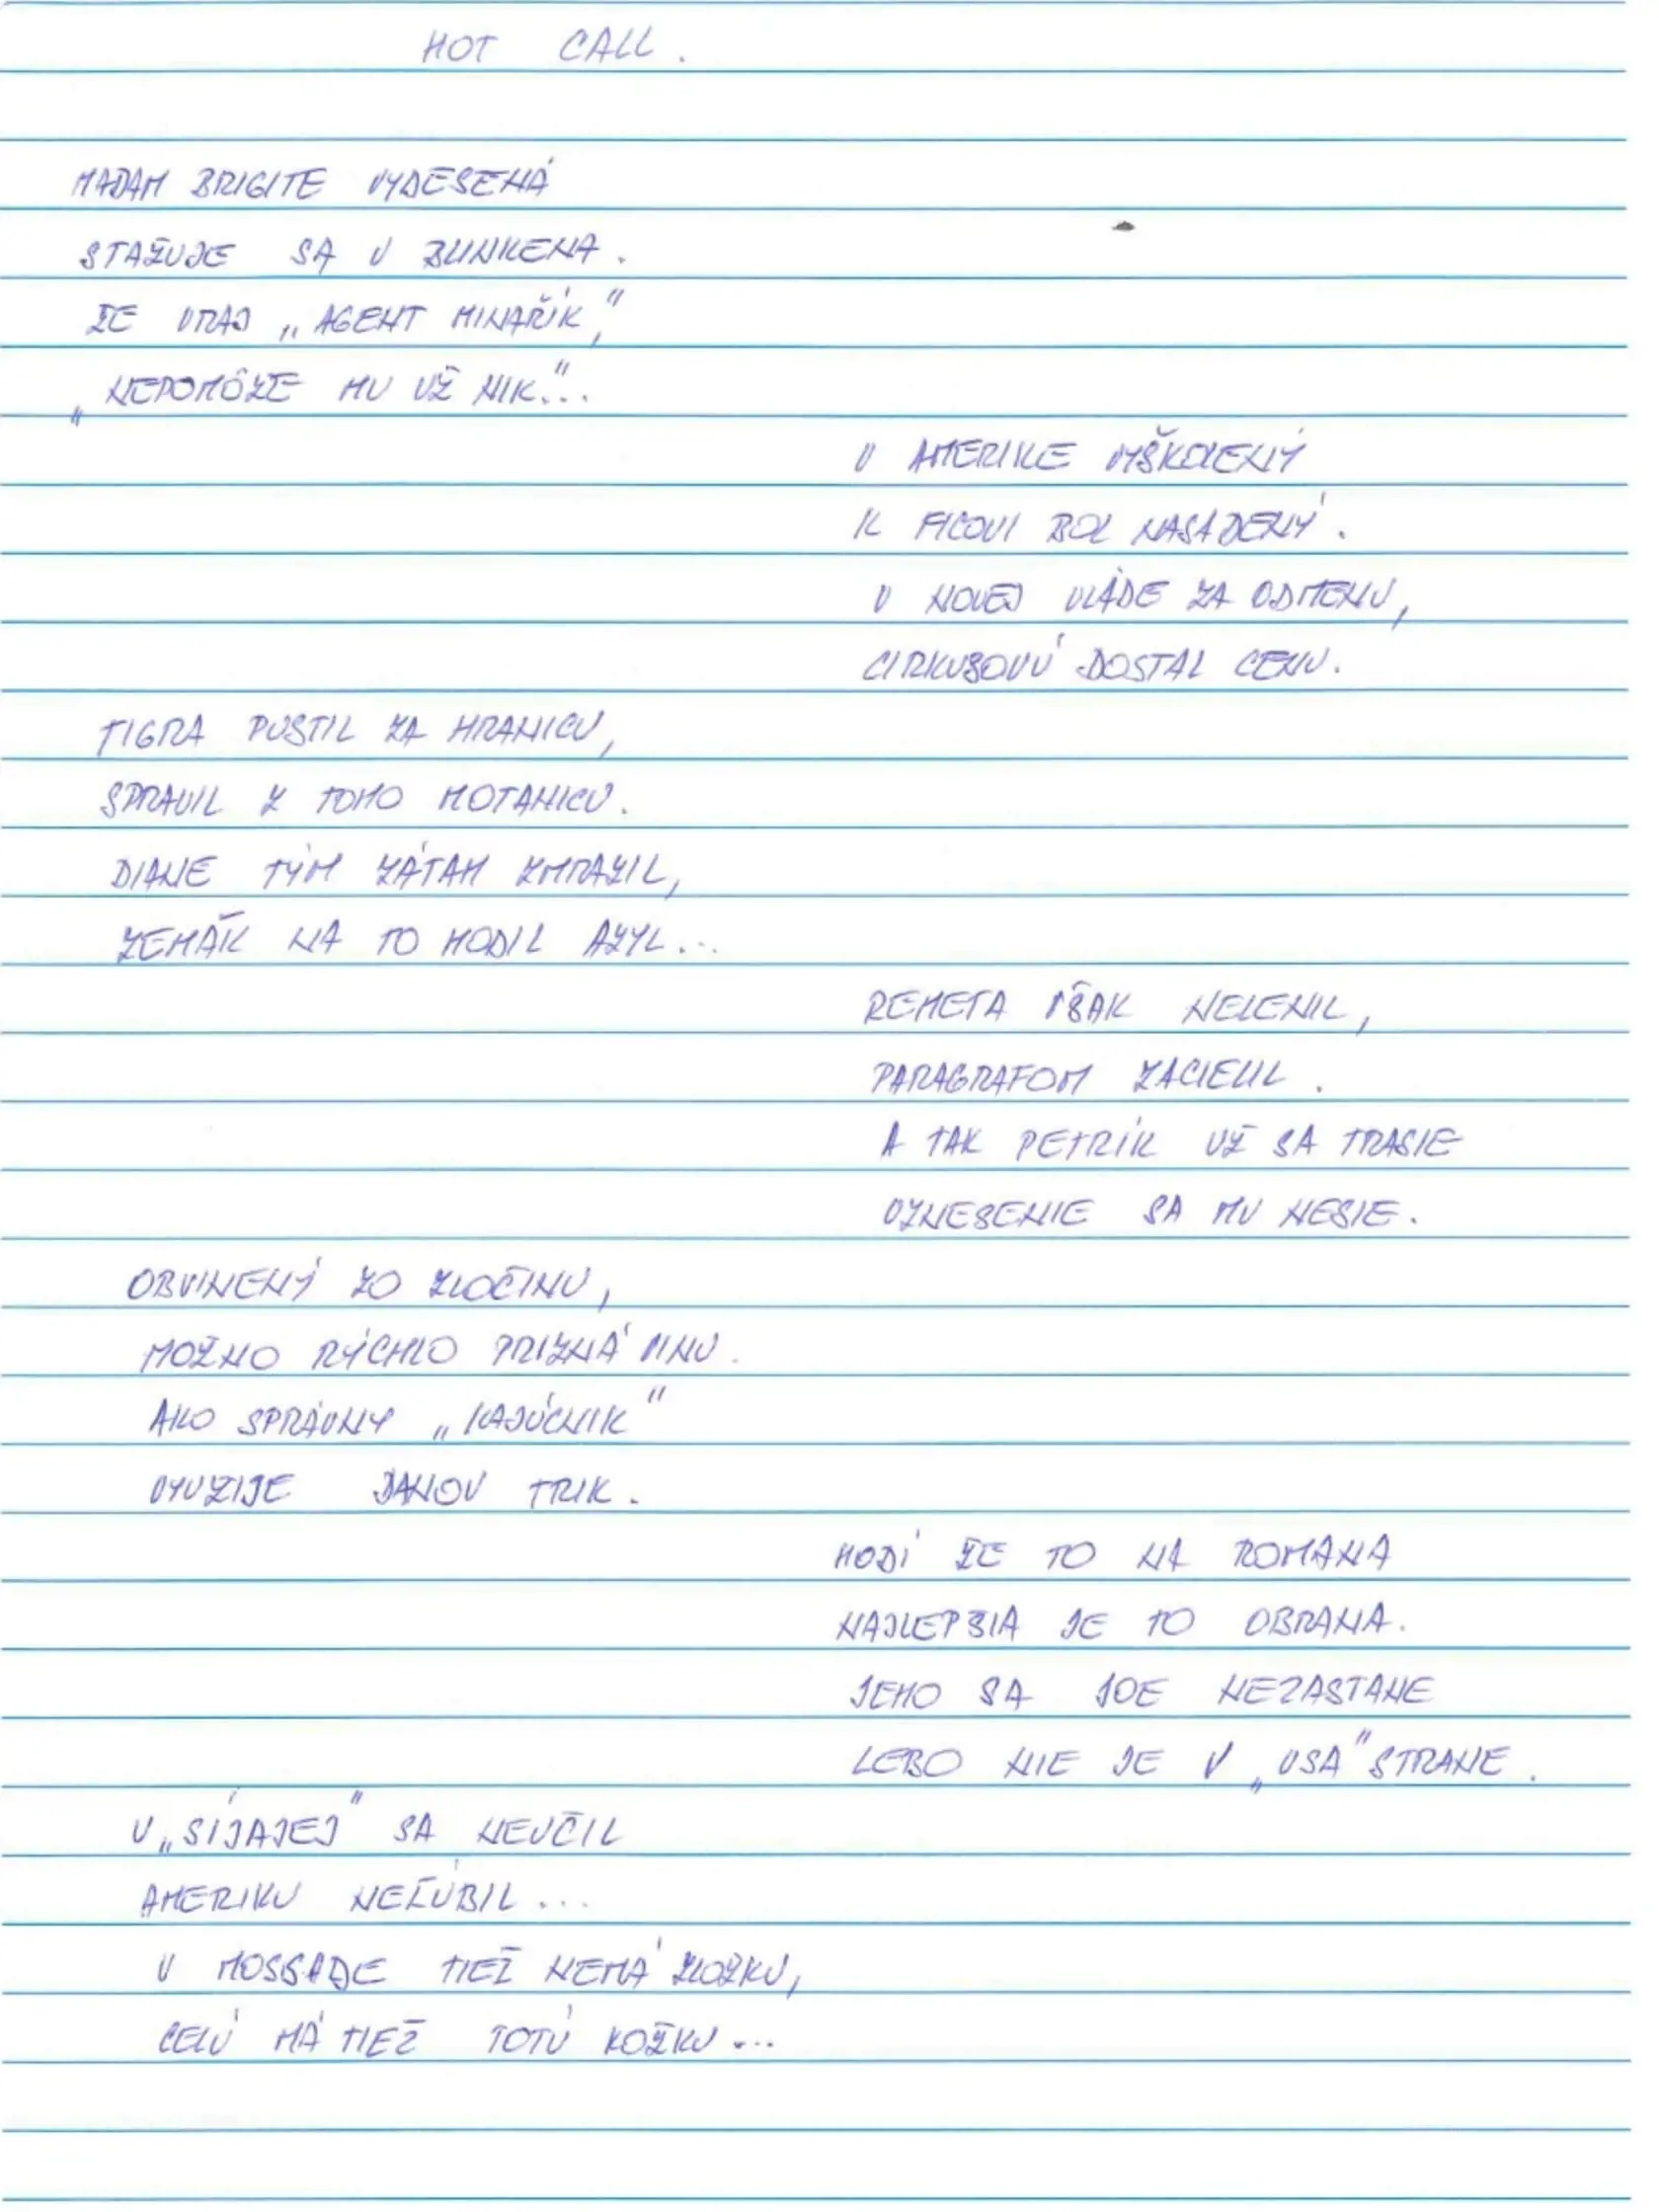 HOT CALL.
MADAM BRIGITE VYDESENÁ
STAŽUJE SA U BLINKENA.
ŽE VRAJ „AGENT MINAŘÍK,"
„NEPOMÔŽE MU UŽ NIK."..
V AMERIKE VYŠKOLENÝ
K FICOVI BOL NASADENÝ.
V NOVEJ VLÁDE ZA ODMENU,
CIRKUSOVÚ DOSTAL CENU.
TIGRA PUSTIL ZA HRANICU,
SPRAVIL Z TOHO MOTANICU.
DIANE TÝM ZÁŤAH ZMRAZIL,
ZEMÁK NA TO HODIL AZYL...
REMETA VŠAK NELENIL,
PARAGRAFOM ZACIELIL.
A TAK PETRÍK UŽ SA TRASIE
UZNESENIE SA MU NESIE.
OBVINENÝ ZO ZLOČINU,
MOŽNO RÝCHLO PRIZNÁ VINU.
AKO SPRÁVNY „KAJÚCNIK"
VYUŽIJE DANOV TRIK.
HODÍ ŽE TO NA ROMANA
NAJLEPŠIA JE TO OBRANA.
JEHO SA JOE NEZASTANE
LEBO NIE JE V „USA" STRANE.
V „SÍJAJEJ" SA NEUČIL
AMERIKU NEĽÚBIL...
V MOSSADE TIEŽ NEMÁ ZLOŽKU,
CELÚ MÁ TIEŽ TOTÚ KOŽKU...